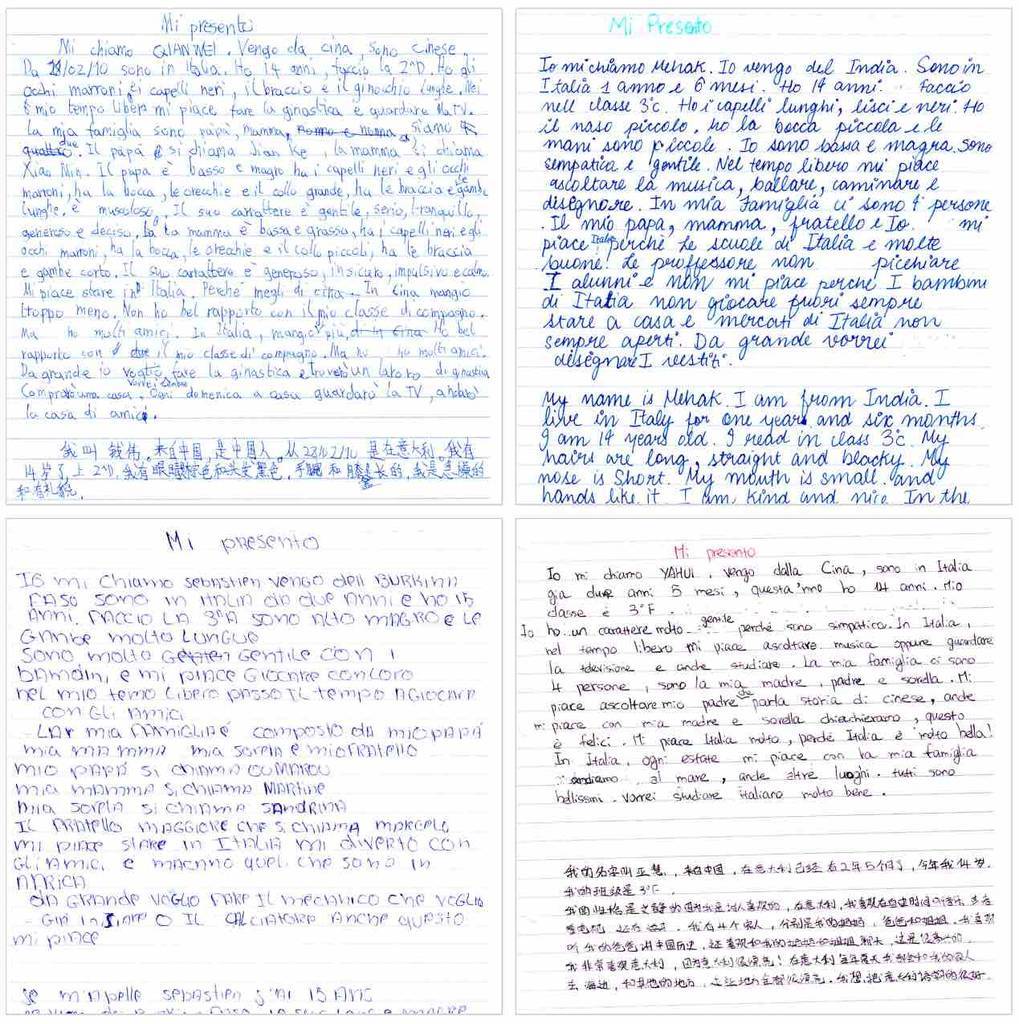 Mi presento
Mi chiamo QIANWEI. Vengo da cina, sono cinese.
Da 28/02/10 sono in Italia. Ho 14 anni, faccio la 2°D. Ho gli
occhi marroni, ei capelli neri, il braccio e il ginocchio lunghe. Nel
mio tempo libero mi piace fare la ginastica e guardare la TV.
La mia famiglia sono papà, mamma, siamo
due. Il papà si chiama Jian Ke, la mamma si chiama
Xiao Min. Il papà è basso e magro ha i capelli neri e gli occhi
marroni, ha la bocca, le orecchie e il collo grande, ha le braccia e gambe
lunghe, è muscoloso. Il suo carattere è gentile, serio, tranquillo,
generoso e deciso. La mamma è bassa e grassa, ha i capelli neri e gli
occhi marroni, ha la bocca, le orecchie e il collo piccoli, ha le braccia
e gambe corto. Il suo carattere è generoso, insicuro, impulsivo e calmo.
Mi piace stare in Italia. Perché megli di cina. In Cina mangio
troppo meno. Non ho bel rapporto con il mio classe di compagno.
Ma ho molti amici. In Italia, mangio più, Ho bel
rapporto con il mio classe di compagno. Ma no, ho multi amici.
Da grande io voglio fare la ginastica e troverò un lavoro di ginastica
Comprarò una casa. Ogni domenica a casa guardarò la TV, andarò
la casa di amici.
我叫 钱伟，来自中国，是中国人。从28/2/10 是在意大利。我有
14岁了，上2°D。我有眼睛棕色和头发黑色，手臂和膝盖长的，我是
和有礼貌。
Mi Presento
Io mi chiamo Mehak. Io vengo del India. Sono in
Italia 1 anno e 6 mesi. Ho 14 anni. Faccio
nell classe 3°c. Ho i capelli lunghi, lisci e neri. Ho
il naso piccolo, ho la bocca piccola e le
mani sono piccole. Io sono bassa e magra. Sono
sempatica e gentile. Nel tempo libero mi piace
ascoltare la musica, ballare, caminare e
disegnore. In mia famiglia ci sono 4 persone
. Il mio papa, mamma, fratello e Io. mi
piace Italia perchè Le scuole di Italia e molte
buone. Le proffessore non picchiare
I alunni e non mi piace perchè I bambini
di Italia non giocare fuori sempre
stare a casa e mercati di Italia non
sempre aperti. Da grande vorrei
disegnare I vestiti.
My name is Mehak. I am from India. I
live in Italy for one years and six months.
I am 14 years old. I read in class 3°c. My
hairs are long, straight and blacky. My
nose is Short. My mouth is small. and
hands like it I am kind and nice. In the
Mi presento
IO mi chiamo sebastien vengo dell BURKINA
FASO SONO IN ITALIA da due anni e ho 15
ANNI. FACCIO LA 3°A SONO ALTO MAGRO E LE
GAMBE MOLTO LUNGUE
SONO molto GENTILE CON I
BAMBINI, e mi PIACE GIOCARE CON LORO
nel mio temo LIBERO PASSO IL TEMPO A GIOCARE
CON GLI AMICI
LA mia FAMIGLIA è composto da mio PAPÀ
mia mamma mia sorela e mio FRATELLO
mio PAPÀ si chiama OUMAROU
mia mamma si chiama Martine
mia sorela si chiama SANDRINA
IL FRATELLO MAGGIORE CHE SI CHIAMA MARCELO
mi piace stare in ITALIA mi diverto con
GLI AMICI e mancano queli che sono in
AFRICA
DA GRANDE VOGLIO FARE IL meccanico che voglio
O IL CALCIATORE ANCHE questo
mi piace
Se m'apelle sebastien j'ai 15 ANS
Mi presento
Io mi chiamo YAHUI. vengo dalla Cina, sono in Italia
gia due anni 5 mesi, quest'anno ho 14 anni. Mio
classe è 3°F.
Io ho un carattere molto gentile perché sono simpatico. In Italia,
nel tempo libero mi piace ascoltare musica oppure guardare
la televisione e anche studiare. La mia famiglia ci sono
4 persone, sono la mia madre, padre e sorella. Mi
piace ascoltare mio padre che parla storia di cinese, anche
mi piace con mia madre e sorella chiacchierano, questo
è felici. Mi piace Italia molto, perché Italia è molto bella!
In Italia, ogni estate mi piace con la mia famiglia
andiamo al mare, anche altre luoghi. tutti sono
bellissimi. Vorrei studiare italiano molto bene.
我的名字叫亚慧，来自中国，在意大利已经有2年5个月了，今年我14岁。
我的班级是3°F.